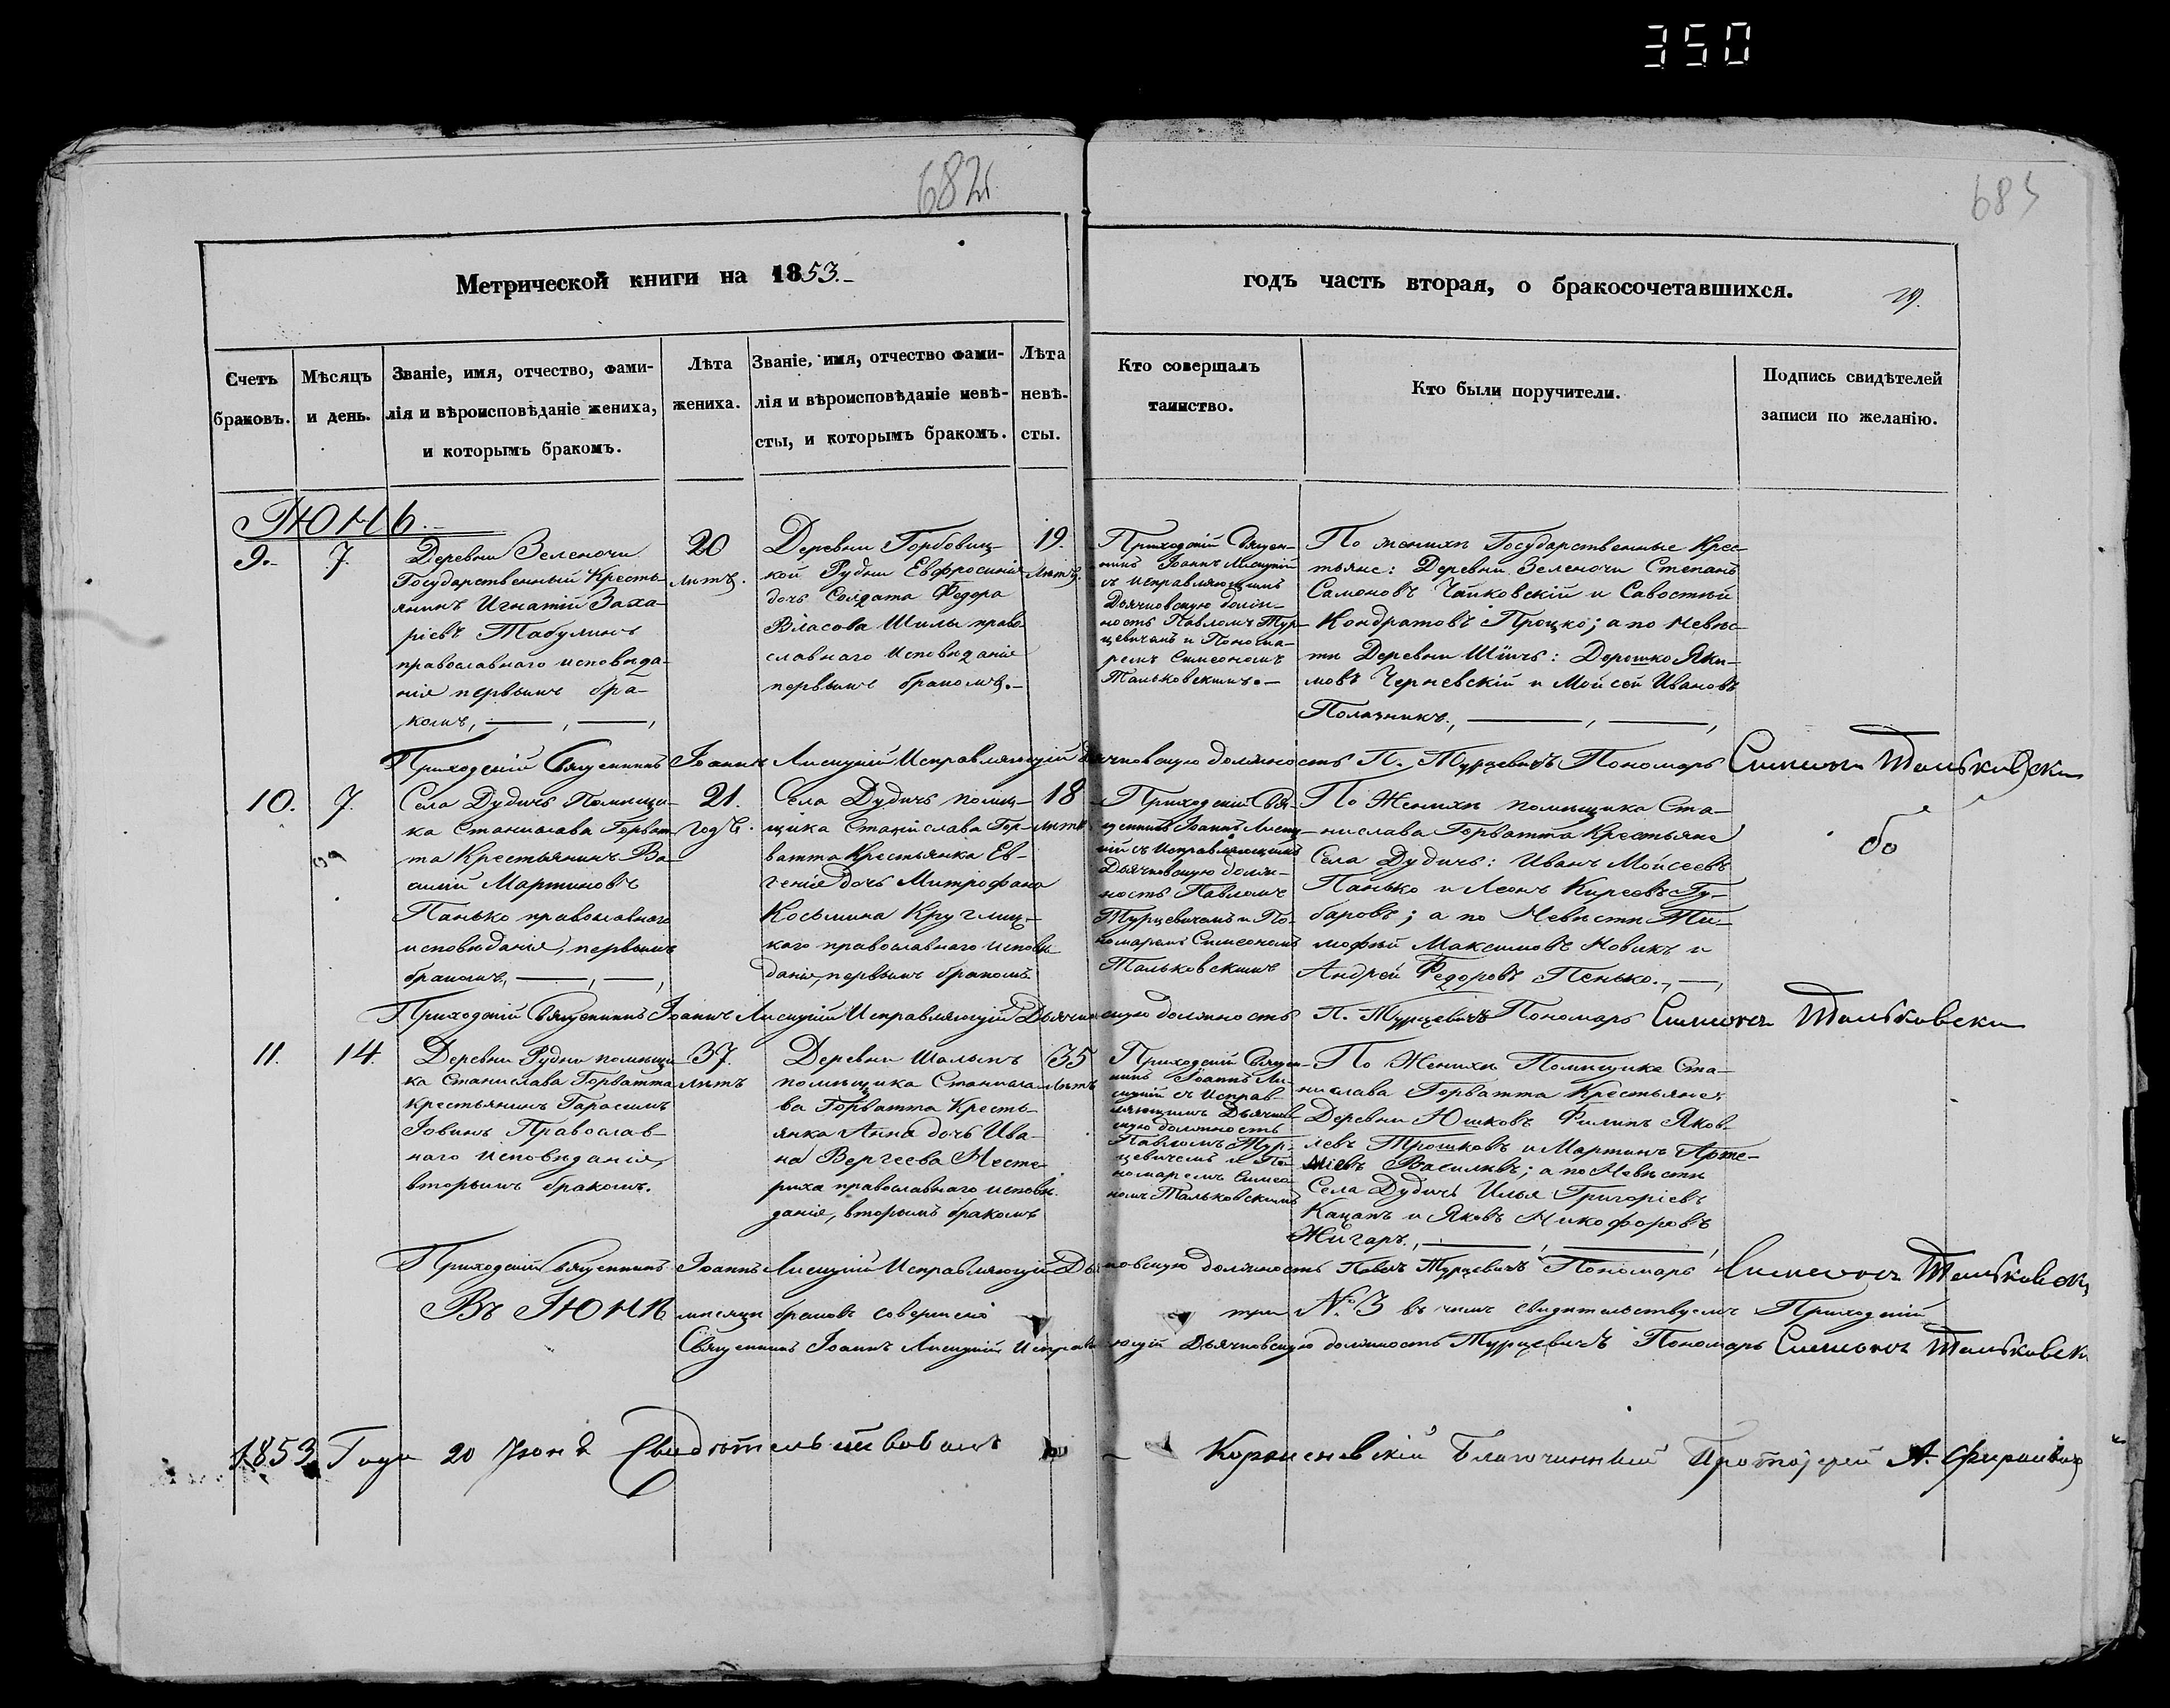 350
682
683
Метрической книги на 1853.-
годъ часть вторая, о бракосочетавшихся.
29.
Счетъ
браковъ.
Мѣсяцъ
и день.
Званіе, имя, отчество, фами-
лія и вѣроисповѣданіе жениха,
и которымъ бракомъ.
Лѣта
жениха.
Званіе, имя, отчество фами-
лія и вѣроисповѣданіе невѣ-
сты, и которымъ бракомъ.
Лѣта
невѣ-
сты.
Кто совершалъ
таинство.
Кто были поручители.
Подпись свидѣтелей
записи по желанію.
Июнь.
9.-
7.
Деревни Зеленочи
Государственный Кресть-
янинъ Игнатій Заха-
ріевъ Табулинъ
православнаго исповѣда-
нія первымъ бра-
комъ,
20
лѣтъ.
Деревни Горбовиц-
кой Рудни Евфросинія
дочь Солдата Федора
Власова Шилы право-
славнаго исповѣданія
первымъ бракомъ.-
19.
лѣтъ.
Приходскій Священ-
никъ Іоаннъ Лисицкій
съ исправляющимъ
Дьячковскую долж-
ность Павломъ Тур-
цевичемъ и Понома-
ремъ Симеономъ
Тальковскимъ.-
По женихѣ Государственные Крес-
тьяне: Деревни Зеленочи Степанъ
Самоновъ Чайковскій и Савостѣй
Кондратовъ Процко; а по Невѣс-
тѣ Деревни Шичъ: Дорошко Яки-
мовъ Черневскій и Мойсей Ивановъ
Полазникъ.,
Приходскій Священникъ Іоаннъ Лисицкій Исправляющій Дьячковскую должность П. Турцевичъ Пономарь Симеонъ Тальковски
10.
7.
Села Дудичъ Помѣщи-
ка Станислава Горват-
та Крестьянинъ Ва-
силій Мартиновъ
Панько православнаго
исповѣданія, первымъ
бракомъ.,
21.
годъ.
Села Дудичъ помѣ-
щика Станіслава Гор-
ватта Крестьянка Ев-
генія дочь Митрофана
Косьмина Круглиц-
каго православнаго исповѣ-
данія, первымъ бракомъ.
18
лѣтъ.
Приходскій Свя-
щенникъ Іоаннъ Лисиц-
кій съ Исправляющимъ
Дьячковскую долж-
ность Павломъ
Турцевичемъ и По-
номаремъ Симеономъ
Тальковскимъ
По Женихѣ помѣщика Ста-
нислава Горватта Крестьяне
Села Дудичъ: Иванъ Мойсеевъ
Панько и Леонъ Киреевъ Гу-
баровъ; а по Невѣстѣ Ти-
мофѣй Максимовъ Новикъ и
Андрей Федоровъ Пенько.,
Приходскій Священникъ Іоаннъ Лисицкій Исправляющій Дьячковскую должность П. Турцевичъ Пономарь Симеонъ Тальковски
11.
14.
Деревни Рудни помѣщи-
ка Станислава Горватта
крестьянинъ Гарасимъ
Іовинъ Православ-
наго исповѣданія,
вторымъ бракомъ.
37.
лѣтъ
Деревни Шалынъ
помѣщика Станисла-
ва Горватта Кресть-
янка Анна дочь Ива-
на Вергеева Несте-
риха православнаго исповѣ-
данія, вторымъ бракомъ
35
лѣтъ
Приходскій Священ-
никъ Іоаннъ Ли-
сицкій съ Исправ-
ляющимъ Дьячков-
скую должность
Павломъ Тур-
цевичемъ и По-
номаремъ Симео-
номъ Тальковскимъ
По Женихѣ Помѣщика Ста-
нислава Горватта Крестьяне:
Деревни Юшковъ Филипъ Яков-
левъ Трошковъ и Мартинъ Арте-
міевъ Василивъ; а по Невѣстѣ
Села Дудичъ Илья Григоріевъ
Кацапъ и Яковъ Никофоровъ
Жигаръ.,
Приходскій Священникъ Іоаннъ Лисицкій Исправляющій Дьячковскую должность Павелъ Турцевичъ Пономарь Симеонъ Тальковски
Въ Июнѣ мѣсяцѣ браковъ совершено три № 3 въ чемъ свидѣтельствуемъ Приходскій
Священникъ Іоаннъ Лисицкій Исправляющій Дьячковскую должность Турцевичъ Пономарь Симеонъ Тальковски
1853 Года 20 Іюня Свидѣтельствовалъ Благочинный Протоіерей А.